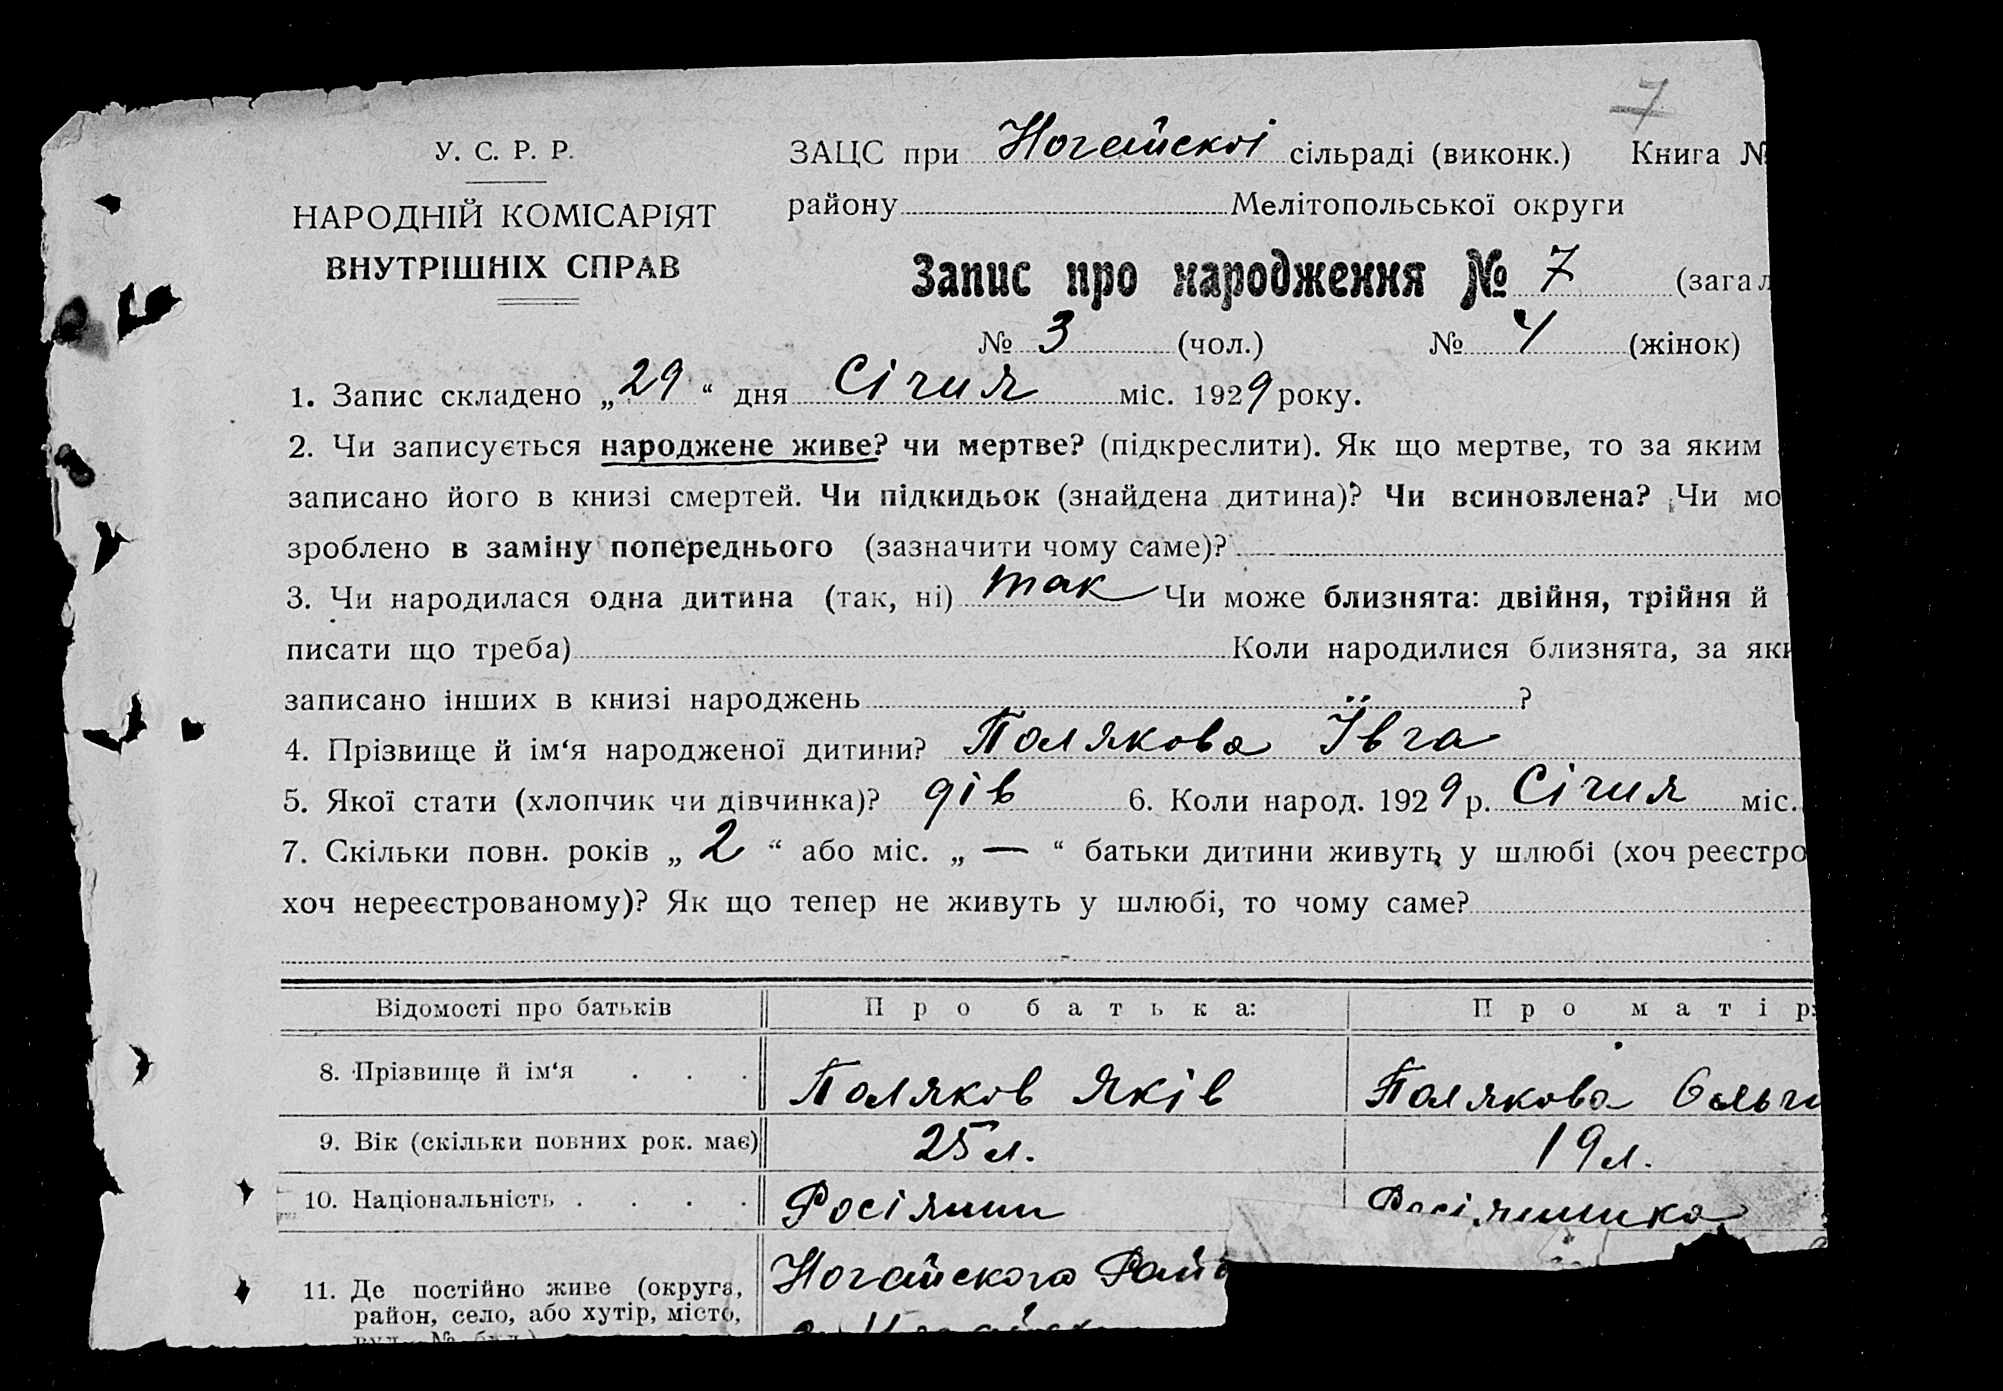 7
У. С. Р. Р.
НАРОДНІЙ КОМІСАРІЯТ
ВНУТРІШНІХ СПРАВ
ЗАЦС при Ногайскої сільраді (виконк.) Книга №
району Мелітопольської округи
Запис про народження № 7 (загал
№ 3 (чол.) № 4 (жінок)
1. Запис складено „29“ дня Січня міс. 1929 року.
2. Чи записується народжене живе? чи мертве? (підкреслити). Як що мертве, то за яким
записано його в книзі смертей. Чи підкидьок (знайдена дитина)? Чи всиновлена? Чи мо
зроблено в заміну попереднього (зазначити чому саме)?
3. Чи народилася одна дитина (так, ні) так Чи може близнята: двійня, трійня й
писати що треба) Коли народилися близнята, за яки
записано інших в книзі народжень ?
4. Прізвище й ім‘я народженої дитини? Полякова Ївга
5. Якої стати (хлопчик чи дівчинка)? дів 6. Коли народ. 1929 р. Січня міс.
7. Скільки повн. років „2“ або міс. „—“ батьки дитини живуть у шлюбі (хоч реєстро
хоч нереєстрованому)? Як що тепер не живуть у шлюбі, то чому саме?
Відомості про батьків Про батька: Про матір:
8. Прізвище й ім‘я . . . Поляков Яків Полякова Ольги
9. Вік (скільки повних рок. має) 25 л. 19 л.
10. Національність . . . . Росіянин Росіянинка
11. Де постійно живе (округа, Ногайского Рай
район, село, або хутір, місто,
вул., № буд.)